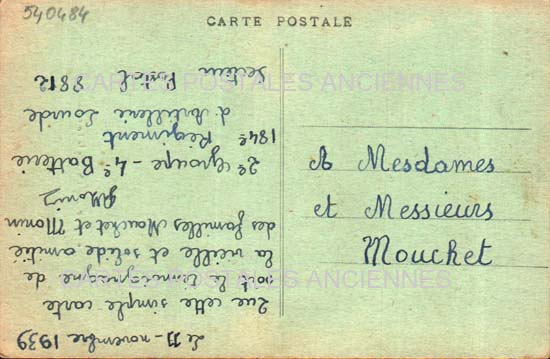 540484
CARTE POSTALE
Le 11 - novembre 1939
Que cette simple carte
soit le témoignage de
la vieille et solide amitié
des familles Mouchet et Monin
2e Groupe - 4e Batterie
184e Régiment
d'Artillerie Lourde
Secteur Postal 8812
A Mesdames
et Messieurs
Mouchet
CARTES POSTALES ANCIENNES
CARTES POSTALES ANCIENNES